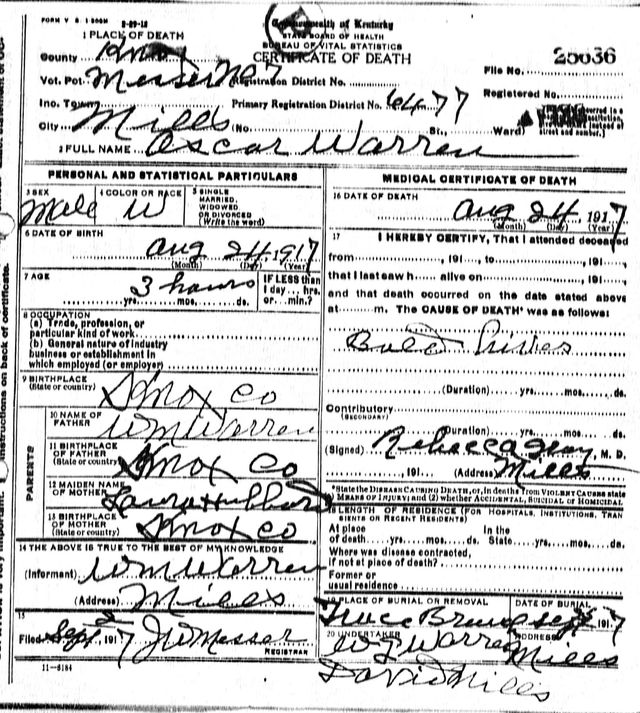 FORM V. S. 1 500M
8-29-16
Commonwealth of Kentucky
STATE BOARD OF HEALTH
BUREAU OF VITAL STATISTICS
CERTIFICATE OF DEATH
1 PLACE OF DEATH
County Knox
Vot. Pct. Messer No 7 Registration District No.
File No. 25636
Registered No.
Ino. Town Primary Registration District No. 6477
City Mills (No. St., Ward)
2 FULL NAME Oscar Warren
PERSONAL AND STATISTICAL PARTICULARS
3 SEX
Male
4 COLOR OR RACE
W
5 SINGLE
MARRIED,
WIDOWED
OR DIVORCED
(Write the word)
6 DATE OF BIRTH
Aug 24 1917
(Month) (Day) (Year)
7 AGE
3 hours
yrs. mos. ds.
IF LESS than
1 day hrs.
or min.?
8 OCCUPATION
(a) Trade, profession, or
particular kind of work
(b) General nature of industry
business or establishment in
which employed (or employer)
9 BIRTHPLACE
(State or country)
Knox Co
PARENTS
10 NAME OF
FATHER
Wm Warren
11 BIRTHPLACE
OF FATHER
(State or country)
Knox Co
12 MAIDEN NAME
OF MOTHER
Laura Hubbard
13 BIRTHPLACE
OF MOTHER
(State or country)
Knox Co
14 THE ABOVE IS TRUE TO THE BEST OF MY KNOWLEDGE
(Informant) Wm Warren
(Address) Mills
15
Filed Sept 2, 1917 J W Messer
REGISTRAR
11-5184
MEDICAL CERTIFICATE OF DEATH
16 DATE OF DEATH
Aug 24, 1917
(Month) (Day) (Year)
17 I HEREBY CERTIFY, That I attended deceased
from , 191 , to , 191
that I last saw h alive on , 191
and that death occurred on the date stated above
at m. The CAUSE OF DEATH* was as follows:
Bold hives
(Duration) yrs. mos. ds.
Contributory
(SECONDARY)
(Duration) yrs. mos. ds.
(Signed) Rebecca Gray M. D.
, 191 (Address) Mills
*State the DISEASE CAUSING DEATH, or, in deaths from VIOLENT CAUSES state
MEANS OF INJURY; and (2) whether ACCIDENTAL, SUICIDAL OR HOMICIDAL
18 LENGTH OF RESIDENCE (FOR HOSPITALS, INSTITUTIONS, TRAN
SIENTS OR RECENT RESIDENTS)
At place In the
of death yrs. mos. ds. State yrs. mos. ds.
Where was disease contracted,
if not at place of death?
Former or
usual residence
19 PLACE OF BURIAL OR REMOVAL DATE OF BURIAL
Sept 1917
20 UNDERTAKER ADDRESS
W J Warren Mills
David Mills